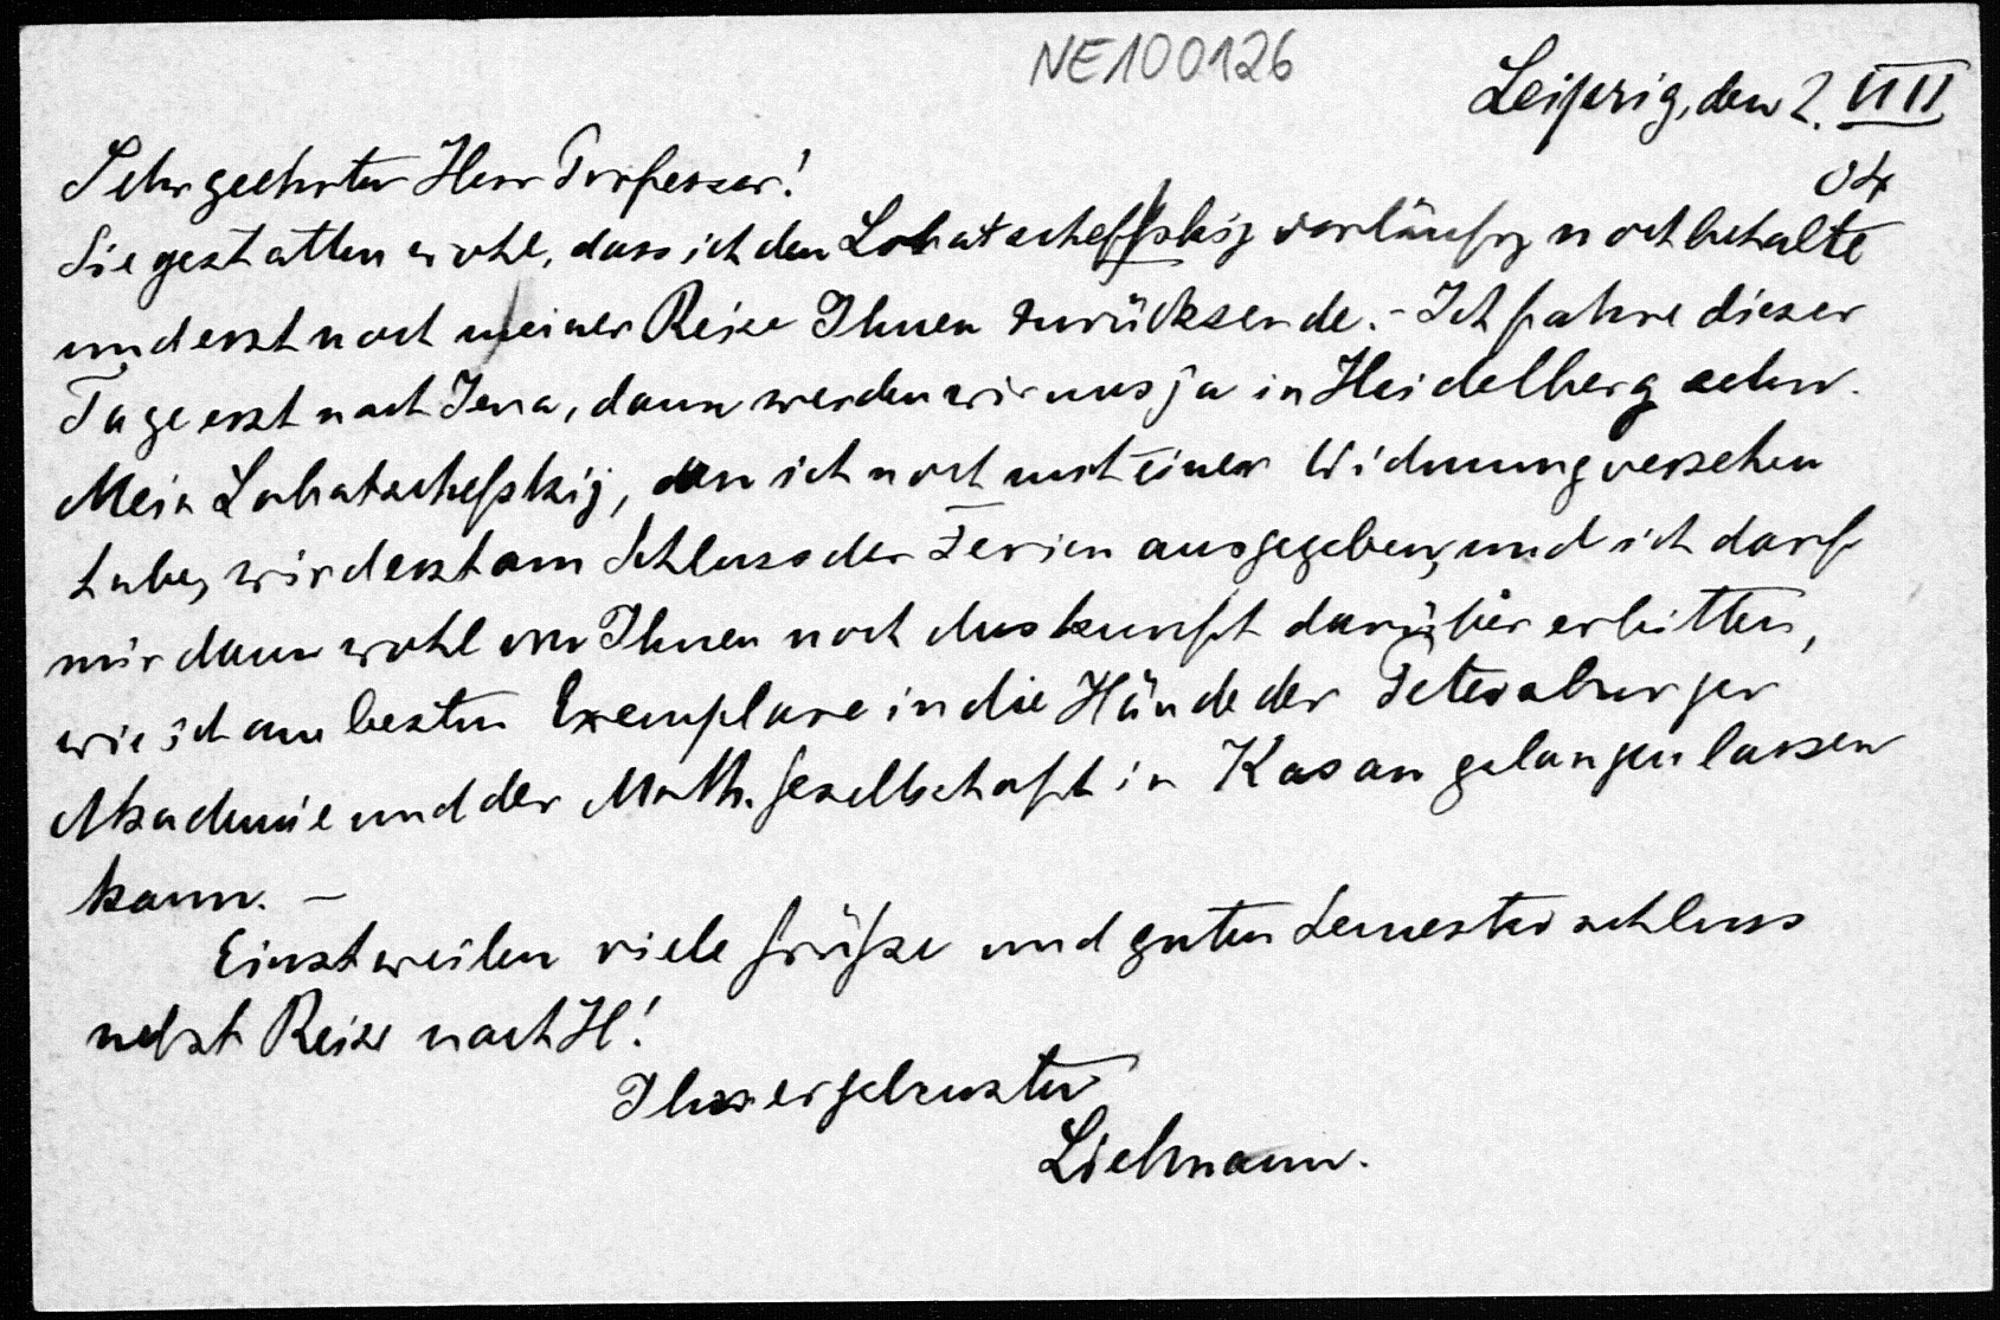 NE100126
Leipzig, den 2. VIII
04
Sehr geehrter Herr Professor!
Sie gestatten wohl, dass ich den Lobatscheffskij vorläufig noch behalte
und erst nach meiner Reise Ihnen zurücksende. - Ich fahre dieser
Tage erst nach Jena, dann werden wir uns ja in Heidelberg sehn.
Mein Lobatschefskij, den ich noch mit einer Widmung versehen
habe, wird erst am Schluss der Ferien ausgegeben, und ich darf
mir dann wohl von Ihnen noch Auskunft darüber erbitten,
wie ich am besten Exemplare in die Hände der Petersburger
Akademie und der Math. Gesellschaft in Kasan gelangen lassen
kann. -
Einstweilen viele Grüsse und guten Semesterschluss
nebst Reise nach H!
Ihr ergebenster
Liebmann.